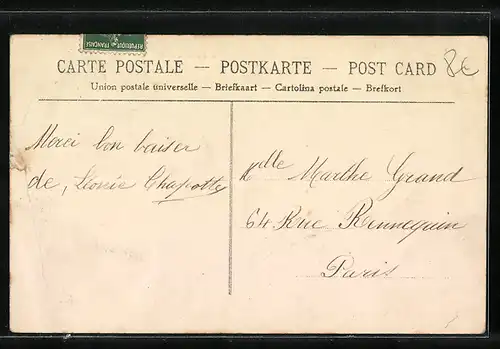 REPUBLIQUE FRANÇAISE
CARTE POSTALE — POSTKARTE — POST CARD
8€
Union postale universelle — Briefkaart — Cartolina postale — Brefkort
Merci bon baiser
de, Léonie Chapotte
Mlle Marthe Grand
64 Rue Rennequin
Paris